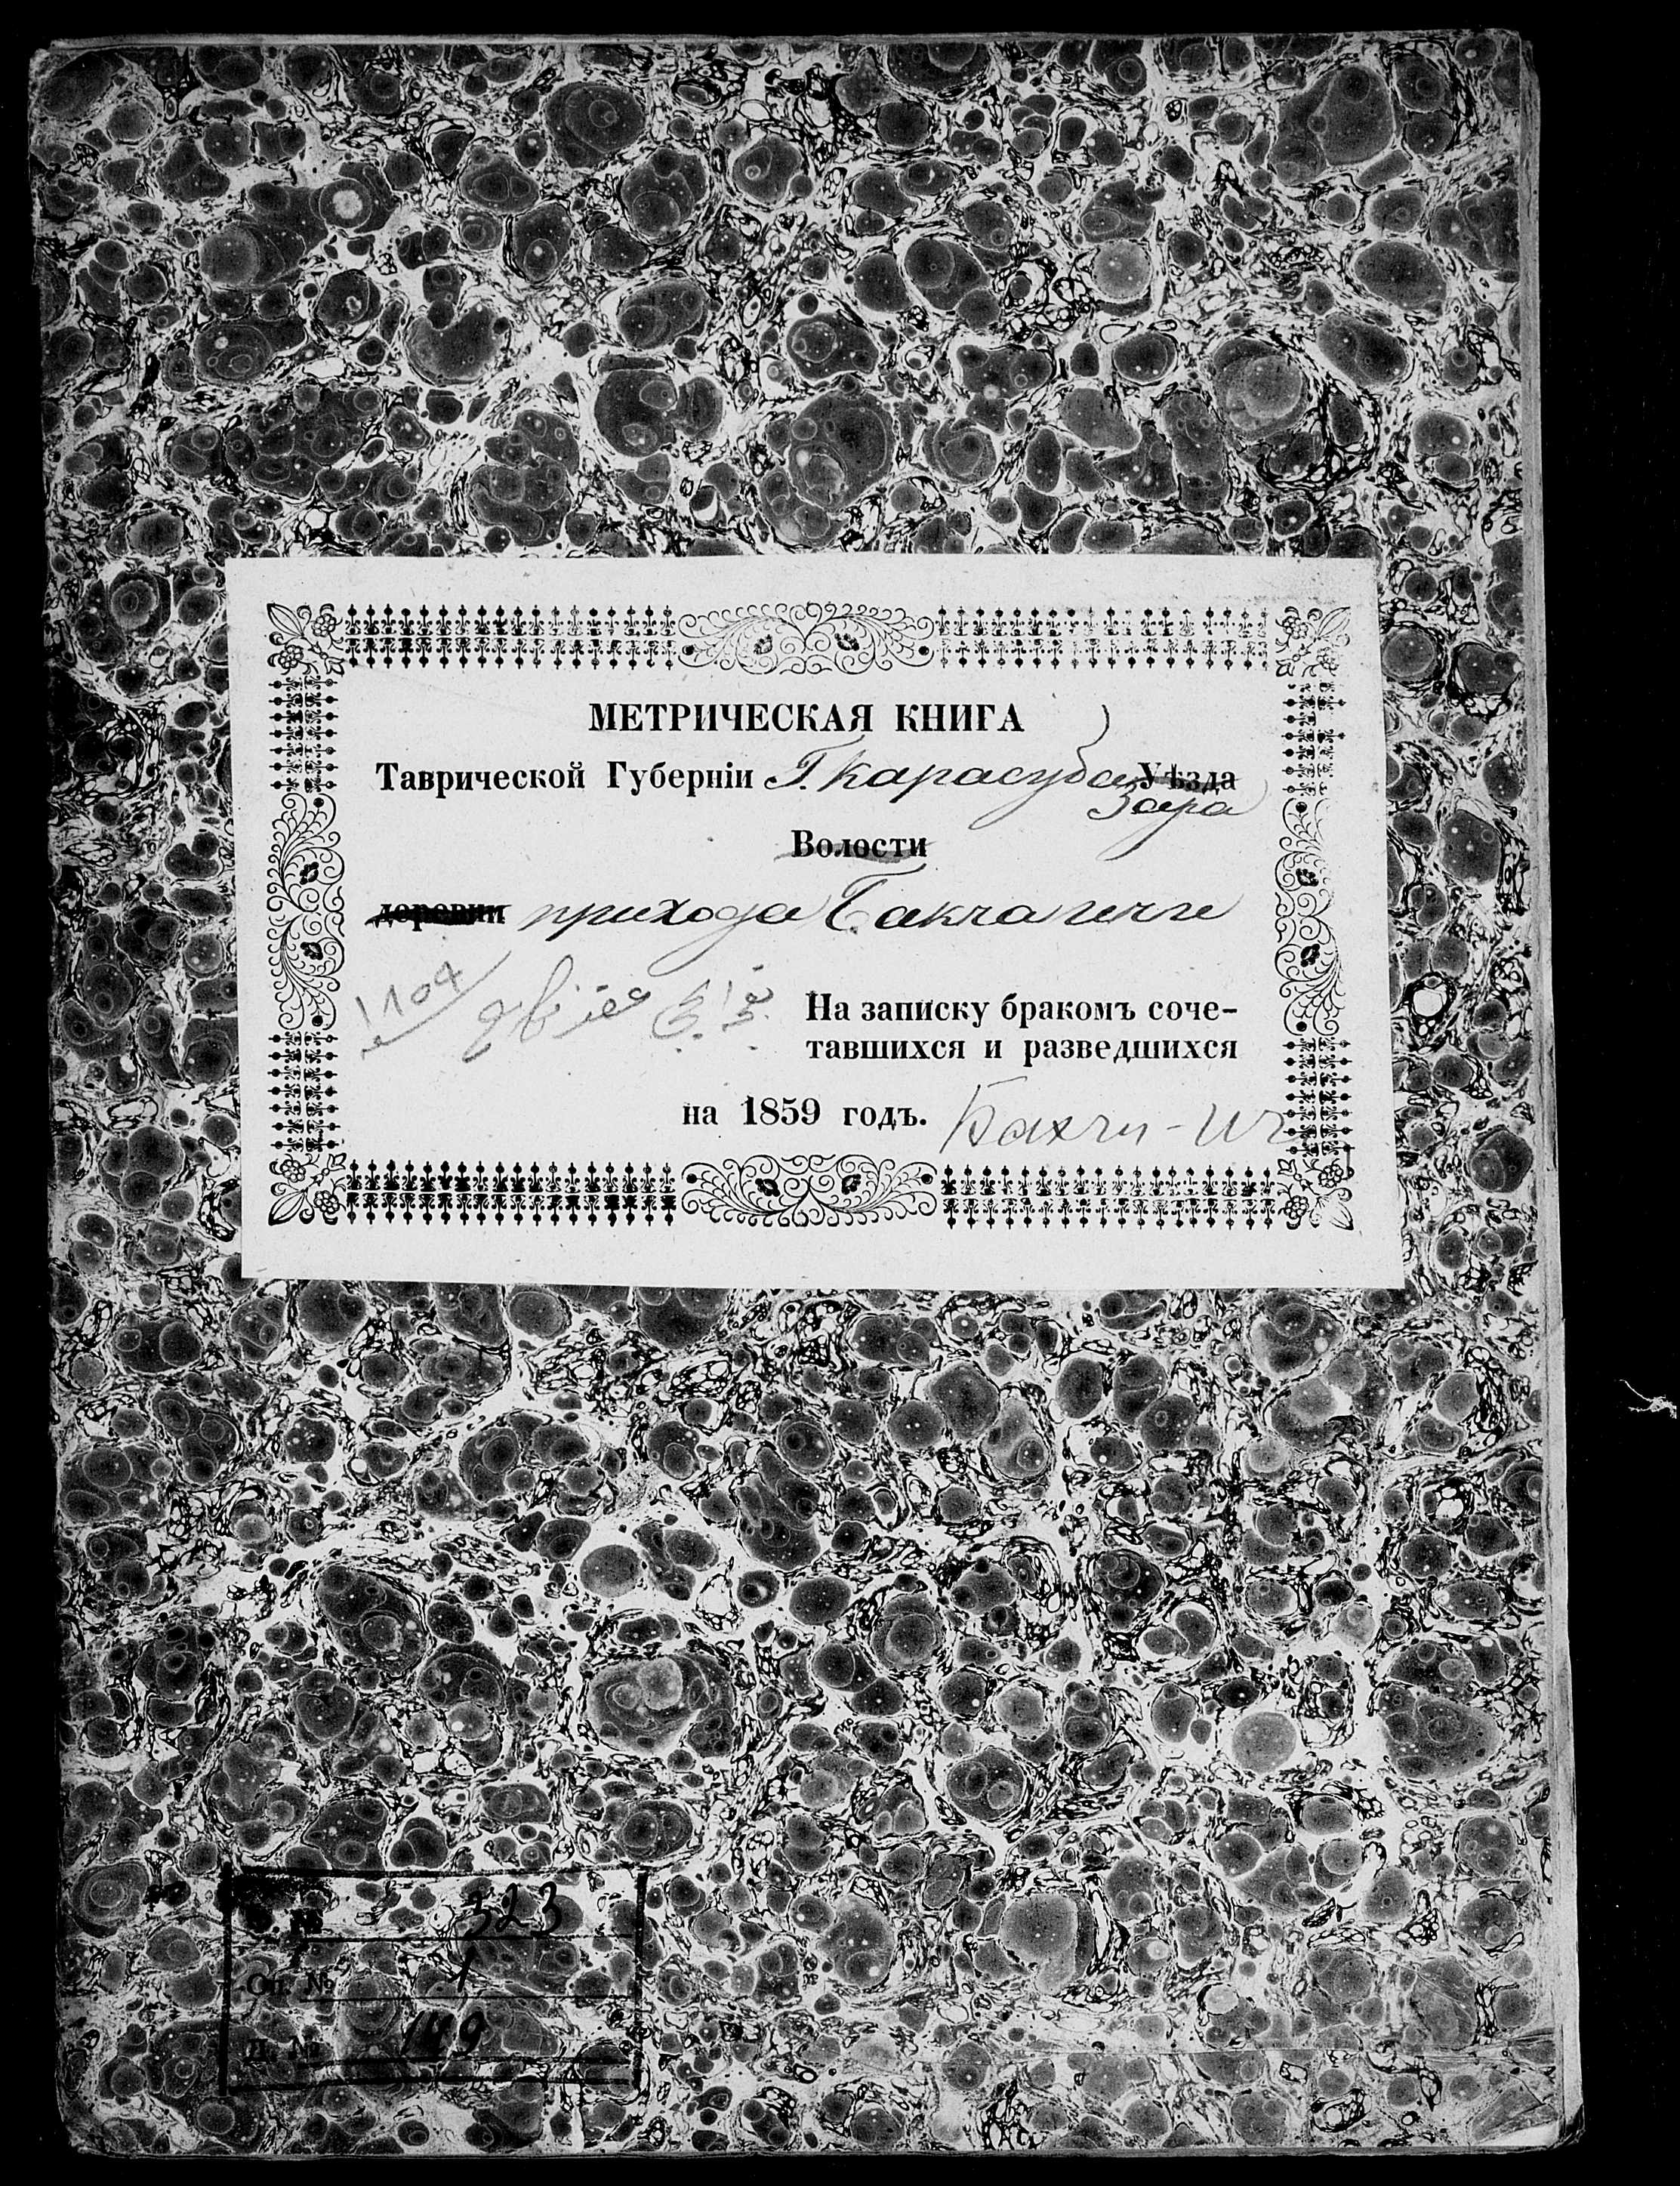 МЕТРИЧЕСКАЯ КНИГА
Таврической Губерніи Г. Карасуба Уѣзда
зара
Волости
деревни прихода Бакча ичи
На записку бракомъ соче-
тавшихся и разведшихся
١٨٥٩
на 1859 годъ. Бахчи-ич
323
Оп. № 1
Д. № 149